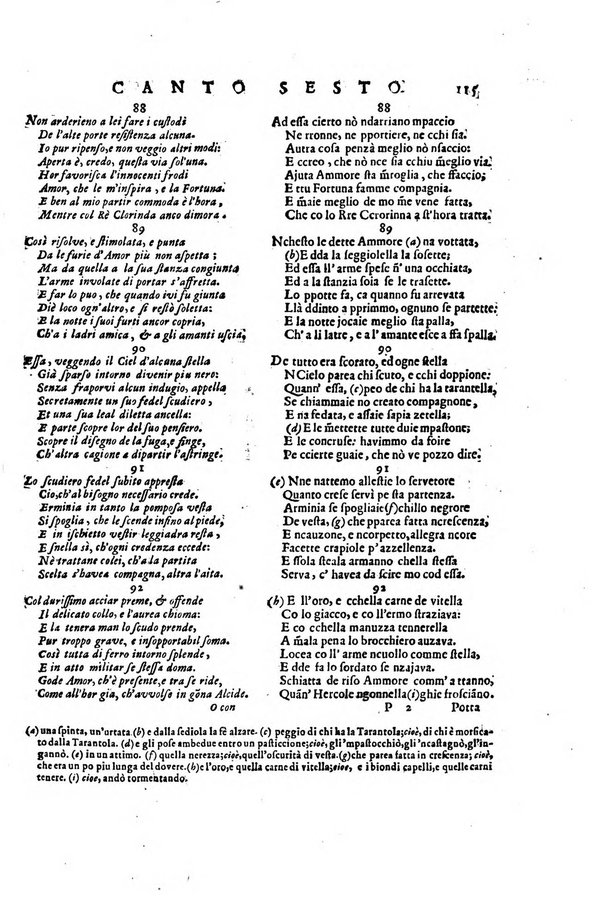 CANTO SESTO. 115
88
Non arderieno a lei fare i cuſtodi
De l'alte porte reſiſtenza alcuna.
Io pur ripenſo, e non veggio altri modi:
Aperta è, credo, queſta via ſol'una.
Hor favoriſca l'innocenti frodi
Amor, che m'inſpira, e la Fortuna.
E ben al mio partir commoda è l'hora,
Mentre col Rè Clorinda anco dimora.
89
Così riſolve, e ſtimolata, e punta
Da le furie d'Amor più non aſpetta;
Ma da quella a la ſua ſtanza congiunta
L'arme involate di portar s'affretta.
E far lo può, che quando ivi fu giunta
Diè loco ogn'altro, e ſi reſtò ſoletta:
E la notte i ſuoi furti ancor copria,
Ch'a i ladri amica, & a gli amanti uſcia;
90
Eſſa, veggendo il Ciel d'alcana ſtella
Già ſparſo intorno divenir più nero:
Senza fraporvi alcun indugio, appella
Secretamente un ſuo fedel ſcudiero,
Et una ſua leal diletta ancella:
E parte ſcopre lor del ſuo penſiero.
Scopre il diſegno de la fuga, e finge,
Ch'altra cagione a dipartir l'aſtringe.
91
Lo ſcudiero fedel ſubito appreſta
Cio, ch'al biſogno neceſſario crede.
Erminia in tanto la pompoſa veſta
Si ſpoglia, che le ſcende infino al piede;
E in iſchietto veſtir leggiadra reſta,
E ſnella sì, ch'ogni credenza eccede:
Nè trattane colei, ch'a la partita
Scelta s'havea compagna, altra l'aita.
92
Col duriſſimo acciar preme, & offende
Il delicato collo, e l'aurea chioma:
E la tenera man lo ſcudo prende,
Pur troppo grave, e inſopportabil ſoma.
Così tutta di ferro intorno ſplende,
E in atto militar ſe ſteſſa doma.
Gode Amor, ch'è preſente, e tra ſe ride,
Come all'hor gia, ch'avvolſe in gōna Alcide.
O con
88
Ad eſſa cierto nò ndarriano mpaccio
Ne rronne, ne pportiere, ne cchi ſia.
Autra coſa penzà meglio nò nſaccio:
E ccreo, che nò nce ſia cchiu m̃eglio via.
Ajuta Ammore ſta m̃roglia, che ffaccio;
E ttu Fortuna famme compagnia.
E m̃aie meglio de mo m̃e vene fatta,
Che co lo Rre Ccrorinna a ſt'hora tratta.
89
Ncheſto le dette Ammore (a) na vottata,
(b) E dda la ſeggiolella la ſoſette;
Ed eſſa ll'arme ſpeſe ñ'una occhiata,
Ed a la ſtanzia ſoia ſe le traſette.
Lo ppotte fa, ca quanno fu arrevata
Ll'auto dditto a pprimmo, ognuno ſe partette:
E la notte jocaie meglio ſta palla,
Ch'a li latre, e a l'amante eſce a ffa ſpalla.
90
De tutto era ſcorato, ed ogne ſtella
N Cielo parea chi ſcuto, e cchi doppione:
Quann' eſſa, (c) peo de chi ha la tarantella,
Se chiammaie no creato compagnone,
E na fedata, e aſſaie ſapia zetella;
(d) E le m̃ettette tutte duie mpaſtone;
E le concruſe: havimmo da foire
Pe ccierte guaie, che nò ve pozzo dire.
91
(e) Nne nattemo alleſtie lo ſervetore
Quanto creſe ſervì pe ſta partenza.
Arminia ſe ſpogliaie (f) chillo negrore
De veſta, (g) che pparea fatta ncreſcenza;
E ncauzone, e ncorpetto, allegra ncore
Facette crapiole p'azzellenza.
E ſſola ſteala armanno cchella ſteſſa
Serva, c'havea da ſcire mo cod eſſa.
92
(h) E ll'oro, e cchella carne de vitella
Co lo giacco, e co ll'ermo ſtraziava:
E co cchella manuzza tennerella
A m̃ala pena lo brocchiero auzava.
Locea co ll'arme ncuollo comme ſtella,
E dde fa lo ſordato ſe nzajava.
Schiatta de riſo Ammore comm' a ttanno,
Quãn' Hercole ngonnella (i) ghie froſciãno.
P 2 Potta
(a) una ſpinta, un'ortata. (b) e dalla ſediola la fè alzare. (c) peggio di chi ha la Tarantola; cioè, di chi è morſica-
to dalla Tarantola. (d) e gli poſe ambedue entro un paſticcione; cioè, gl'impaſtocchiò, gl'incaſtagnò, gl'in-
gannò. (e) in un attimo. (f) quella nerezza; cioè, quell'oſcurità di veſta. (g) che parea fatta in creſcenza; cioè,
che era un po piu lunga del dovere. (h) e l'oro, e quella carne di vitella; cioe, e i biondi capelli, e quelle carni
tenere. (i) cioè, andò tormentando.